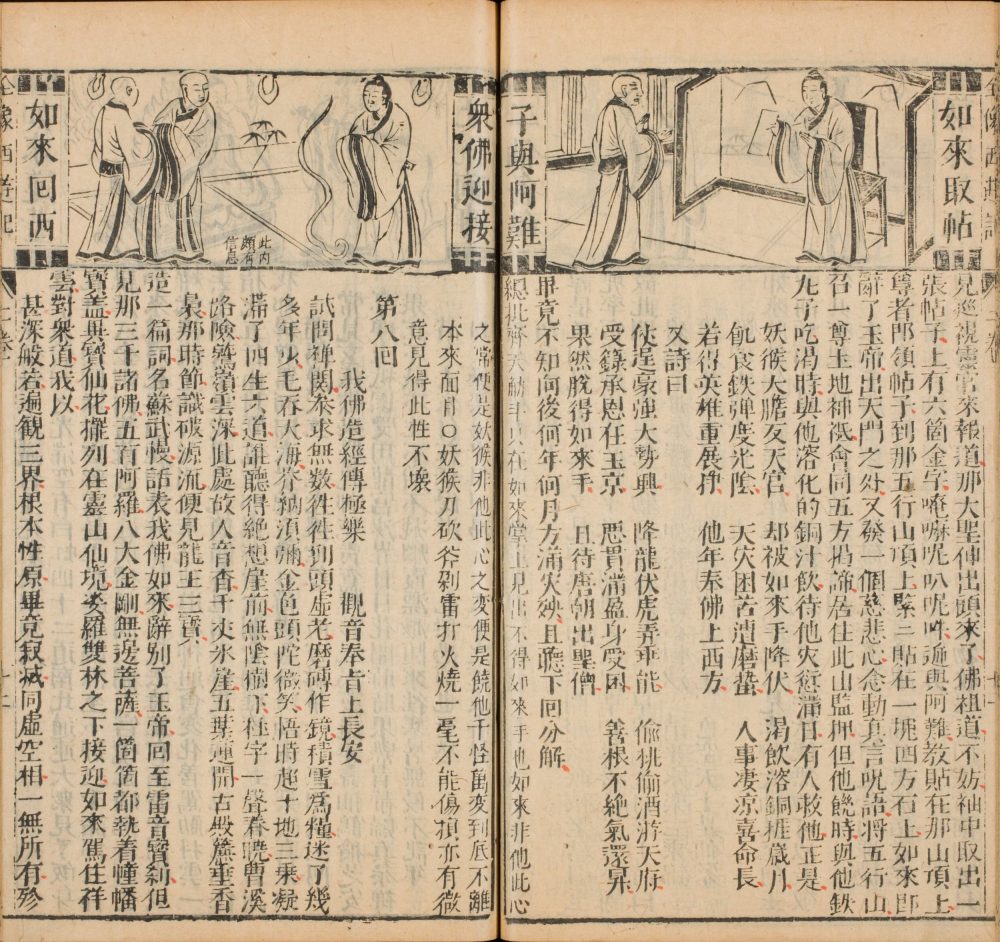 如來取帖
子與阿難
見巡視靈官來報道那大聖伸出頭來了佛祖道不妨袖中取出一
張帖子上有六箇金字唵嘛呢叭呢吽遞與阿難教貼在那山頂上
尊者即領帖子到那五行山頂上緊二貼在一塊四方石上如來即
辭了玉帝出天門之外又發一個慈悲心念動真言呪語將五行山
召一尊土地神祇會同五方揭諦居住此山監押但他饑時與他鉄
九子吃渴時與他溶化的銅汁飲待他灾愆滿日有人救他正是
妖猴大膽反天宮 却被如來手降伏 渴飲溶銅捱歲月
飢食鉄弹度光陰 天灾困苦遭磨蟄 人事凄凉喜命長
若得英雄重展挣 他年奉佛上西方
又詩曰
伏逞豪強大勢興 降龍伏虎弄乖能 偷桃偷酒游天府
受錄承恩在玉京 惡貫滿盈身受困 善根不絶氣還昇
果然脫得如來手 且待唐朝出聖僧
畢竟不知向後何年何月方滿灾殃且聽下回分解
緫批齊天觔斗只在如來掌上見出不得如來手也如來非他此心
衆佛迎接
如來回西
此内
頗有
信息
之常便是妖猴非他此心之变便是饒他千怪萬变到底不離
本來面目○妖猴刀砍斧剁雷打火燒一毫不能傷損亦有微
意見得此性不壞
第八回
我佛造經傳極樂 觀音奉旨上長安
試問禪関叅求無数徃徃到頭虛老磨磚作鏡積雪為糧迷了幾
多年少毛吞大海芥納須彌金色頭陀微笑悟時超十地三乗凝
滞了四生六道誰聽得絶想崖前無陰樹下杜宇一聲春曉曹溪
路險鷲嶺雲深此處故人音杳千丈氷崖五葉蓮開古殿簾垂香
裊那時節識破源流便見龍王三寶
這一篇詞名蘇武慢話表我佛如來辭别了玉帝回至雷音寶刹但
見那三千諸佛五百阿羅八大金剛無邊菩薩一箇箇都執着幢幡
寶盖異寶仙花擺列在靈山仙境娑羅雙林之下接迎如來駕住祥
雲對衆道我以
甚深般若遍観三界根本性原畢竟寂滅同虛空相一無所有殄